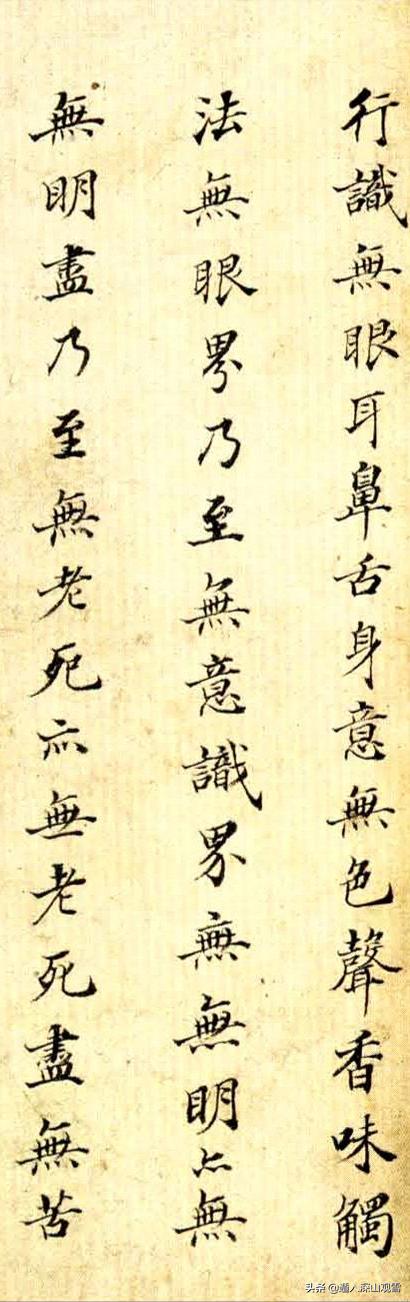 行識無眼耳鼻舌身意無色聲香味觸
法無眼界乃至無意識界無無明亦無
無明盡乃至無老死亦無老死盡無苦
头条@遁人深山观雪